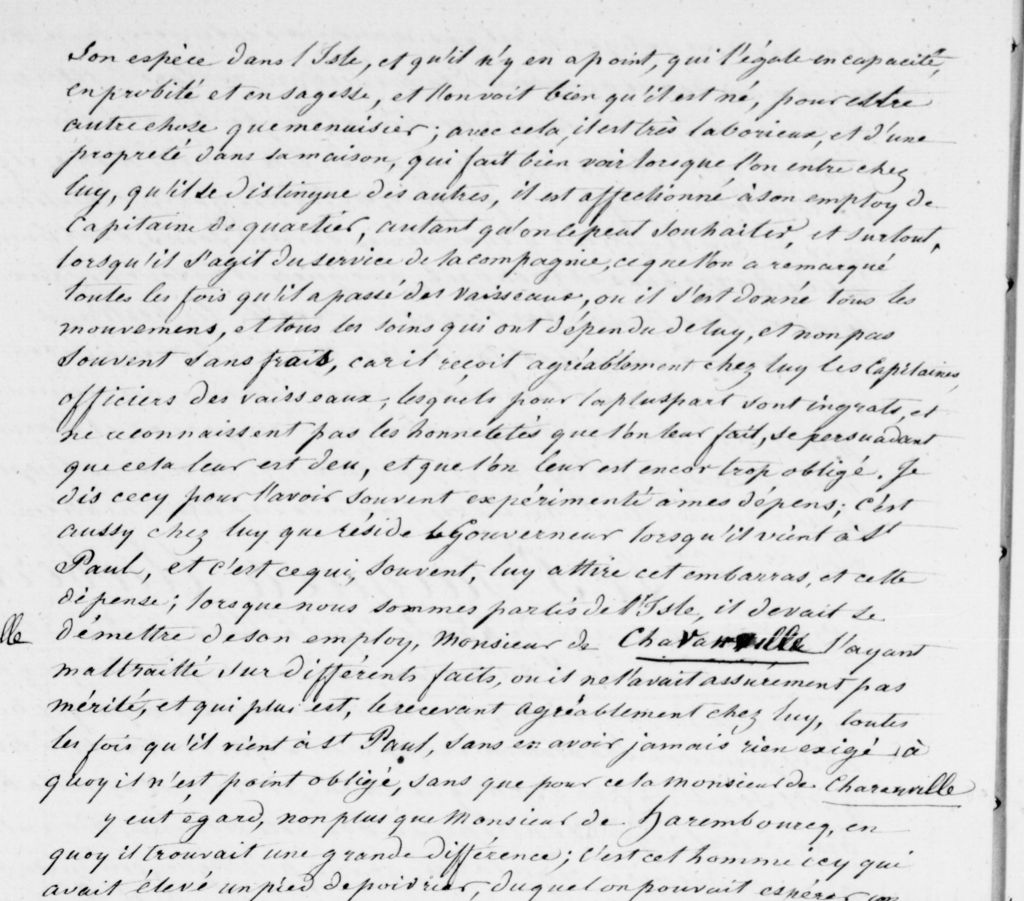 son espèce dans l'Isle, et qu'il n'y en a point, qui l'égale en capacité,
en probité et en sagesse, et l'on voit bien qu'il est né, pour estre
autre chose que menuisier; avec cela, il est très laborieux, et d'une
propreté dans sa maison, qui fait bien voir lorsque l'on entre chez
luy, qu'il se distingue des autres, il est affectionné à son employ de
Capitaine de quartier, autant qu'on le peut souhaiter, et surtout,
lorsqu'il s'agit du service de la compagnie, ce que l'on a remarqué
toutes les fois qu'il a passé des vaisseaux, ou il s'est donné tous les
mouvemens, et tous les soins qui ont dépendu de luy, et non pas
souvent sans frais, car il reçoit agréablement chez luy les Capitaines,
officiers des vaisseaux, lesquels pour la pluspart sont ingrats, et
ne reconnaissent pas les honnetetés que l'on leur fait, se persuadant
que cela leur est deu, et que l'on leur est encor trop obligé. Je
dis cecy pour l'avoir souvent expérimenté à mes dépens; c'est
aussy chez luy que réside le Gouverneur lorsqu'il vient à St
Paul, et c'est ce qui, souvent, luy attire cet embarras, et cette
dépense; lorsque nous sommes partis de l'Isle, il devait se
lle démettre de son employ, Monsieur de Chavanville l'ayant
maltraitté sur différents faits, ou il ne l'avait assurément pas
mérité, et qui plus est, le recevant agréablement chez luy, toutes
les fois qu'il vient à St Paul, sans en avoir jamais rien exigé, à
quoy il n'est point obligé, sans que pour cela Monsieur de Charanville
y eut égard, non plus que Monsieur de Harembourcq, en
quoy il trouvait une grande différence; C'est cet homme icy qui
avait élevé un pied de poivrier, duquel on pouvait espérer